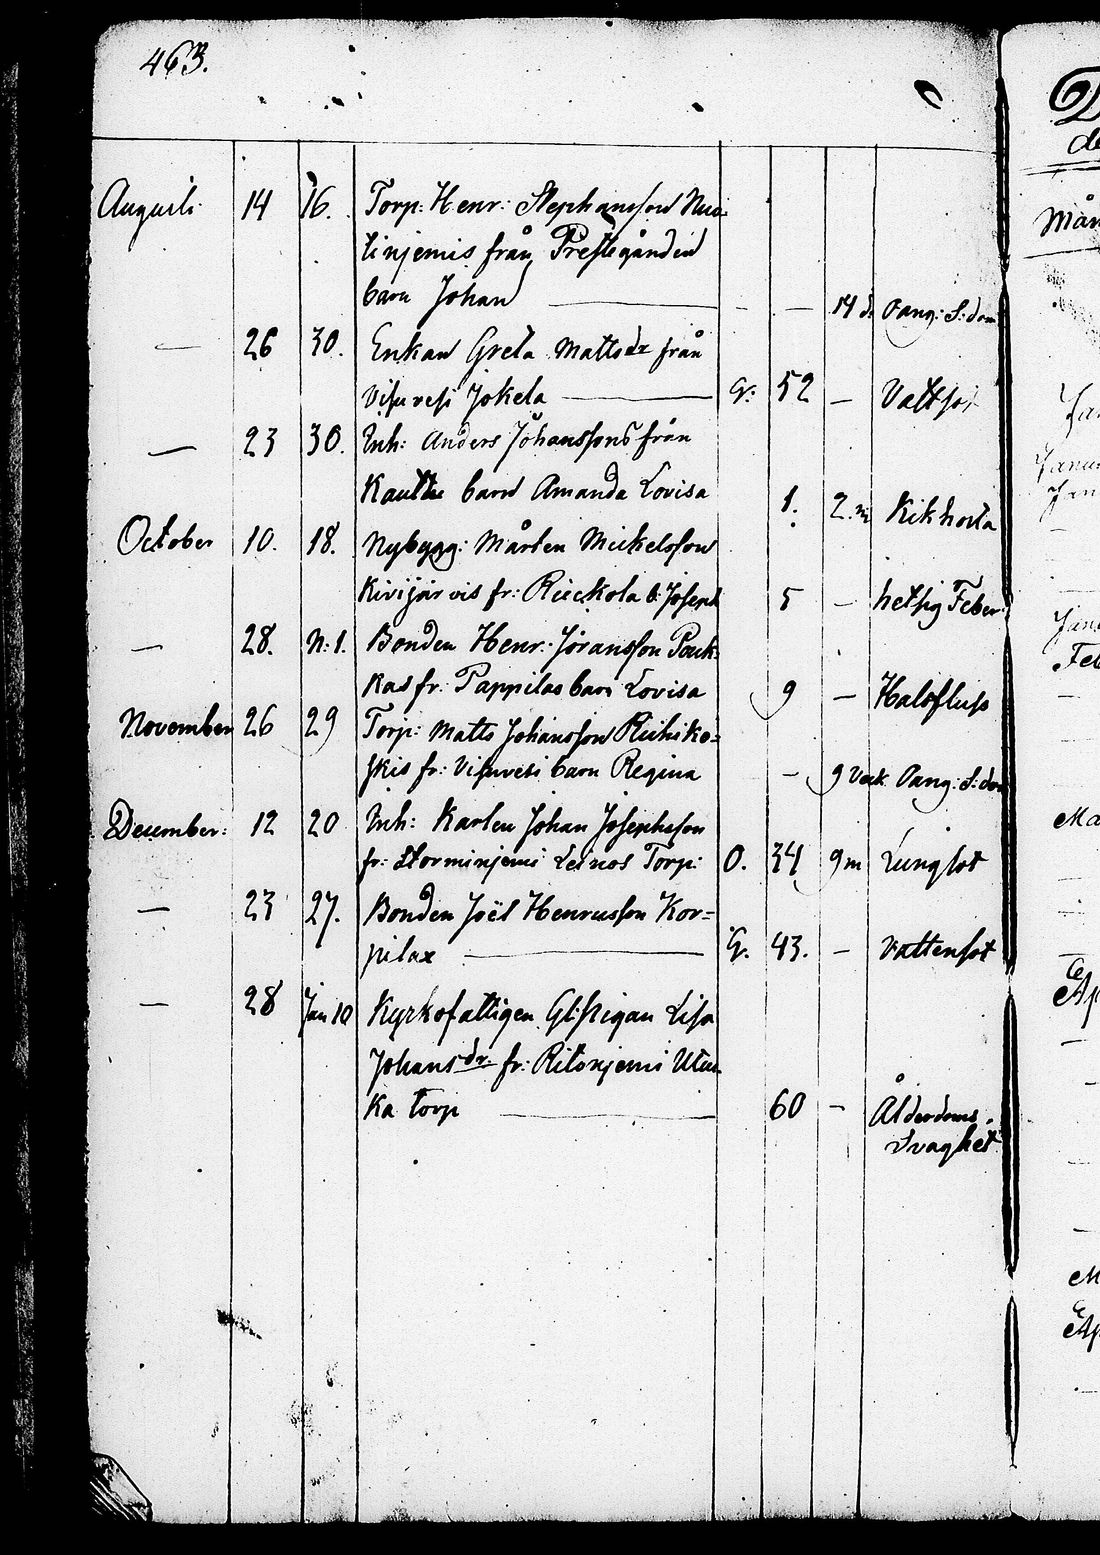 463.
Augusti 14 16. Torp: Henr: Stephansson
från Prestegården
barn Johan — — 14 d. Oang: S:dom
— 26 30. Enkan Greta Mattsdr från
Visuvesi Jokela G: 52 — Vattsot
— 23 30. Inh: Anders Johanssons från
Kautto barn Amanda Lovisa 1. 2.m Kikhosta
October 10. 18. Nybygg: Mårten Mickelsson
Kivijärvis fr: Rieckola b. Joseph 5 — hetsig Feber
— 28. N. 1. Bonden Henr: Jöransson Pauk-
kas fr: Pappilas barn Lovisa 9 — Halsfluss
November 26 29 Torp: Matts Johansson Riihiko=
skis fr: Visuvesi barn Regina — 9 Veck Oang: S:dom
December: 12 20 Inh: Karlen Johan Josephsson
fr: Storminjemi Leinos Torp: O. 34 9m Lungsot
— 23 27. Bonden Joël Henricsson Kor=
pilax G. 43. — Vattensot
— 28 Jan 10 Kyrkofattigen Lisa
Johansdr: fr: Ritonjemi
ka torp 60 — Ålderdoms
Svaghet
D
de
Mån
Janu
Fe
Ma
Ap
M
Ap